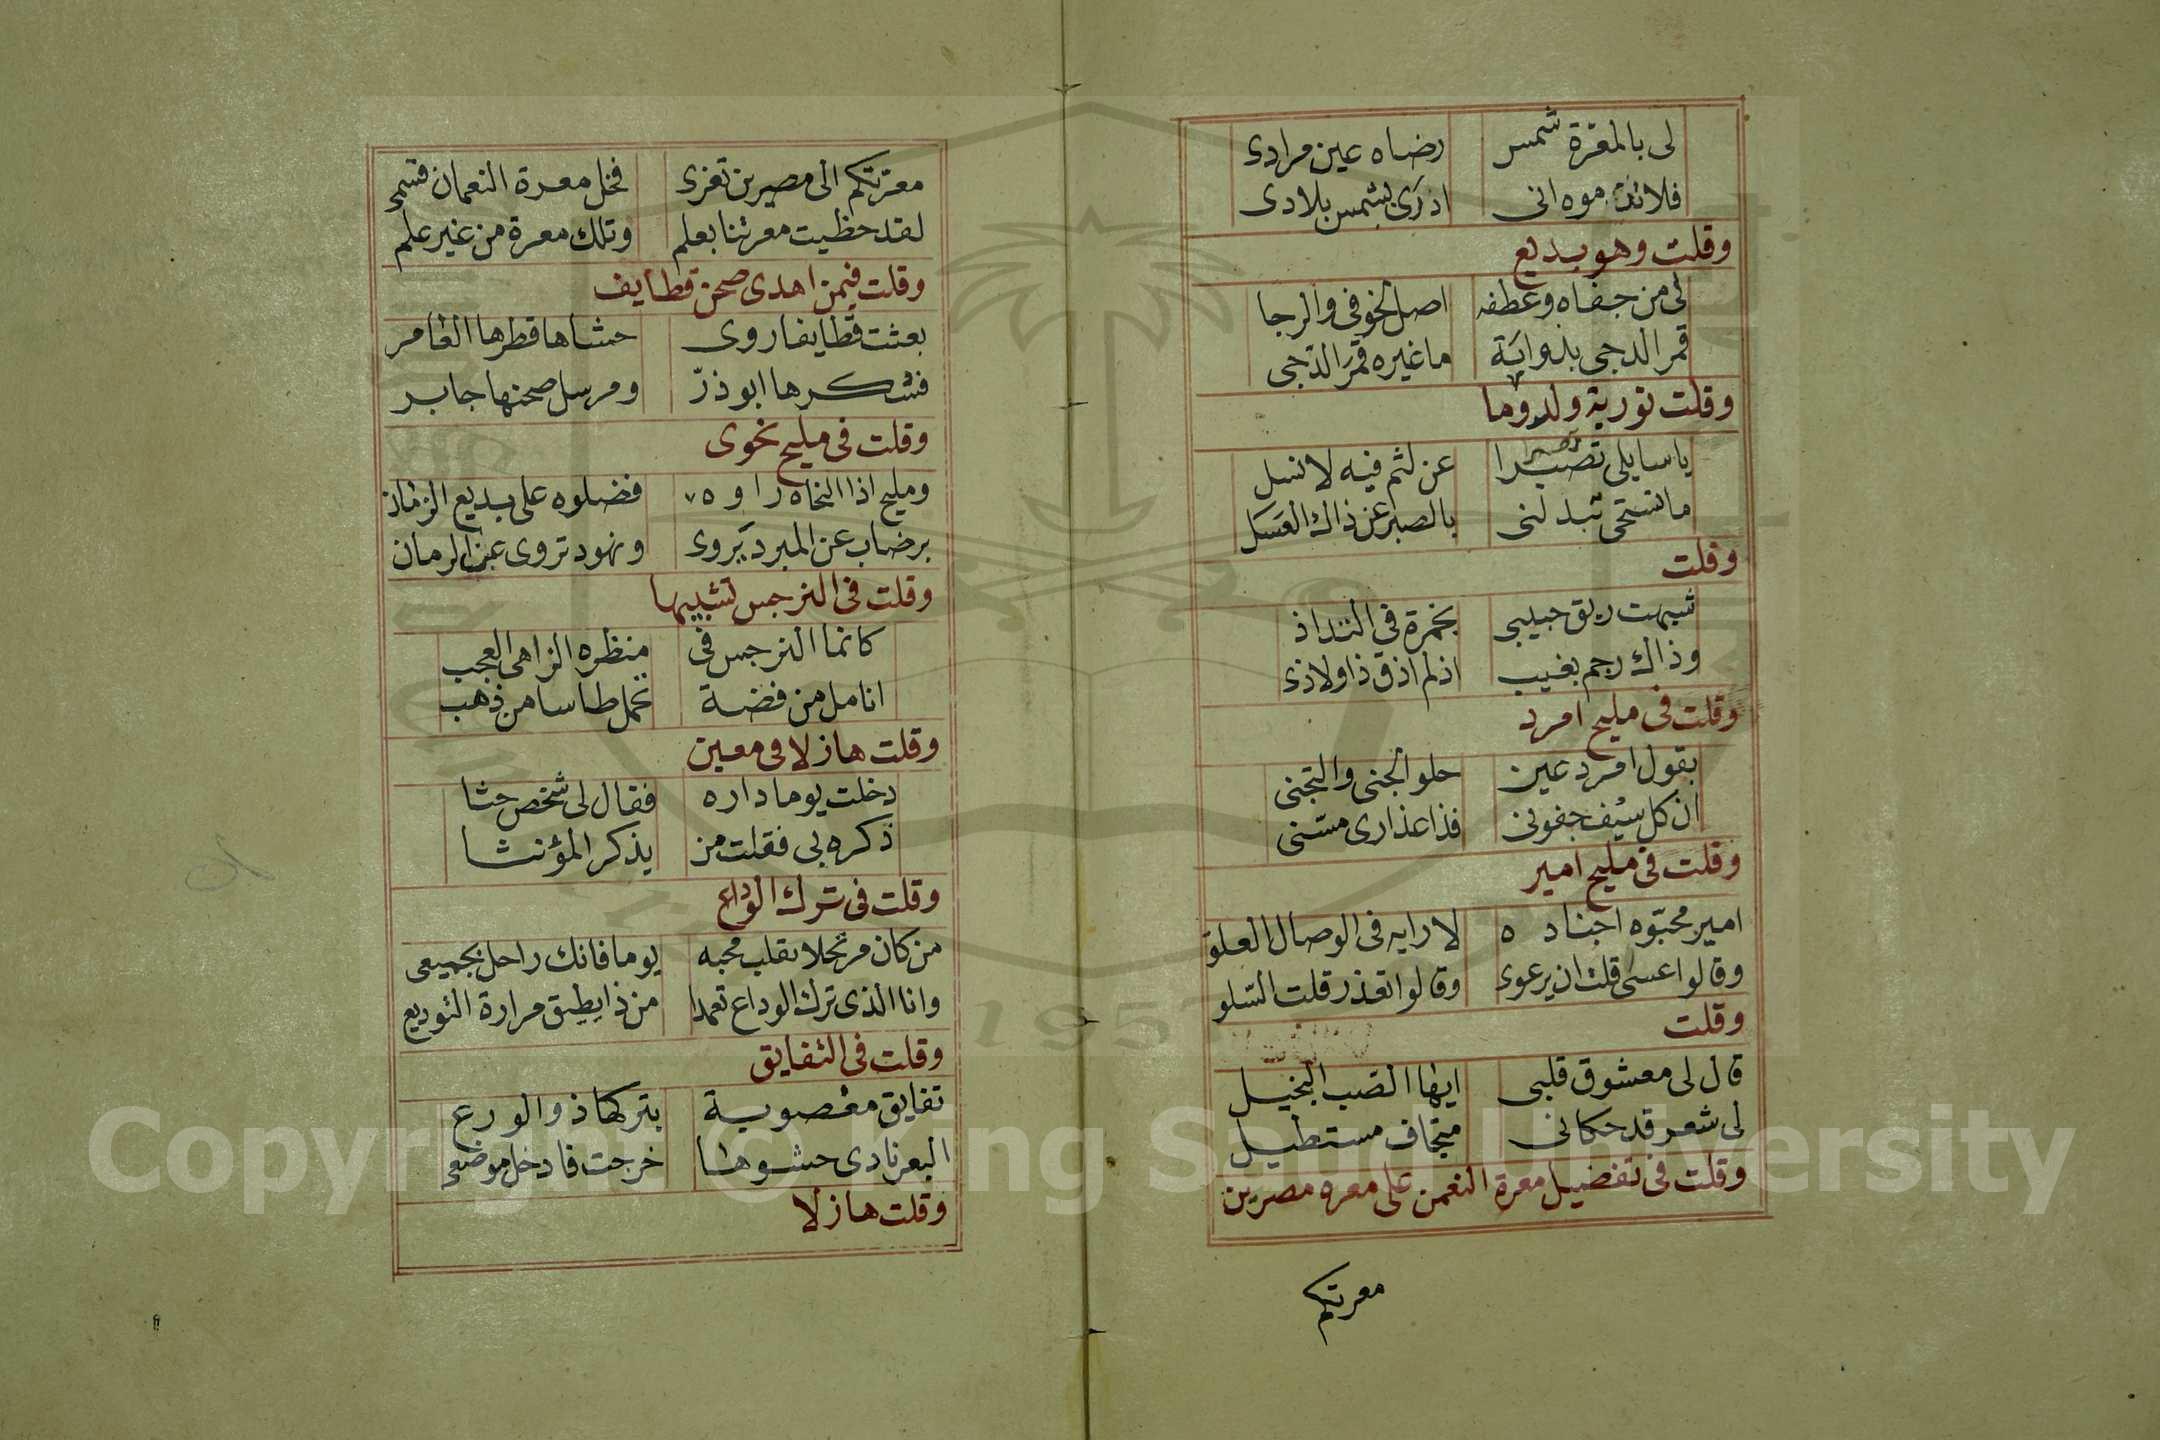 لى بالمعرة شمس رضاه عين مرادى
فلا موه انى ادرى بشمس بلادى
وقلت وهو بديع
لى من جفاه وعطفه اصل الخوف والرجا
قمر الدجى بذوابة ما غيره قمر الدجى
وقلت تورية ولدوما
يا سايلى تصبرا عن لثم فيه لا نسل
ما تستحى تبدلنى بالصبر عن ذاك العسل
وقلت
شبهت ريق حبيبى بخمرة فى التذاذ
وذاك رجم بغيب اذ لم اذق ذا ولا ذى
وقلت فى مليح امرد
بقول امرد عين حلو الجنى والتجنى
ان كل سيف جفونى فذا عذارى مسنى
وقلت فى مليح امير
امير محبوه اجناده لا رايه فى الوصال العلو
وقالوا عسى قلت ان يرعوى وقالوا تعذر قلت السلو
وقلت
قال لى معشوق قلبى ايها الصب البخيل
لى شعر قد حكانى متجاف مستطيل
وقلت فى تفضيل معرة النعمن على معره مصرين
معرتكم
معرتكم الى مصرين تعزى فخل معرة النعمان قسمى
لقد حظيت معرتنا بعلم وتلك معرة من غير علم
وقلت فيمن اهدى صحن قطايف
بعثت قطايفا روى حشاها قطرها الغامر
فشكرها ابو ذر ومرسل صحنها جابر
وقلت فى مليح نحوى
ومليح اذا النحاه راوه فضلوه على بديع الزمان
برضاب عن المبرد يروى ونهود تروى عن الرمان
وقلت فى النرجس تشبيها
كانما النرجس فى منظره الزاهى العجب
انامل من فضة تحمل طاسا من ذهب
وقلت هازلا فى معين
دخلت يوما داره فقال لى شخص حثا
ذكره بى فقلت من يذكر المؤنثا
وقلت فى ترك الوداع
من كان مرتحلا بقلب محبه يوما فانك راحل بجميعى
وانا الذى ترك الوداع تعمدا من ذا يطيق مرارة التوديع
وقلت فى التفايق
تفايق مغصوبة بتركها ذو الورع
البعر نادى حشوها خرجت فادخل موضعى
وقلت هازلا
Copyright © King Saud University
1957